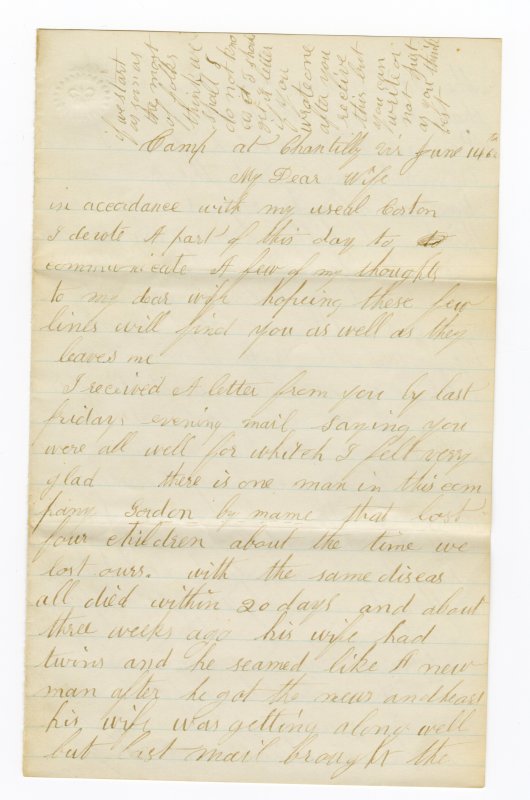 if we start
as soon as
the most
of folks
think we
shall I
do not kno
as I shal
get a letter
if you
write one
after you
receive
this but
you can
write or
not just
as you think
best
Camp at Chantilly Vir June 14th
My Dear Wife
in accordance with my useul Coston
I devote A part of this day to
communicate A few of my thoughts
to my dear wife hopeing these few
lines will find you as well as they
leaves me
I received A letter from you by last
fridays evening mail, saying you
were all well for whitch I felt very
glad there is one man in this com
pany Gordon by name that lost
four children about the time we
lost ours. with the same diseas
all died within 20 days and about
three weeks ago his wife had
twins and he seamed like A new
man after he got the news and heard
his wife was getting along well
but last mail brought the